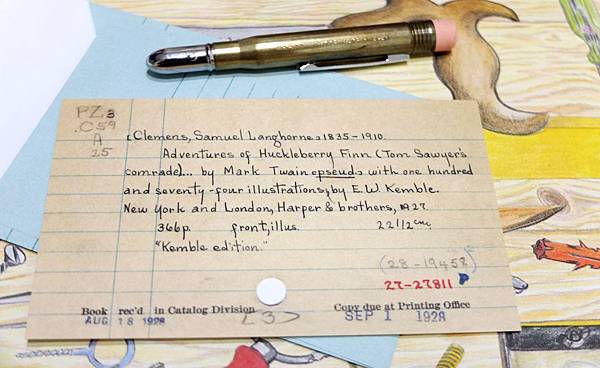 PZ3
.C59
A
25
[Clemens, Samuel Langhorne] 1835-1910.
Adventures of Huckleberry Finn (Tom Sawyer's
comrade)... by Mark Twain [pseud.] with one hundred
and seventy-four illustrations, by E.W. Kemble.
New York and London, Harper & brothers, 1927.
366p. front., illus. 22 1/2 cm.
"Kemble edition."
(28-19458)
27-27811
Book rec'd in Catalog Division Copy due at Printing Office
AUG 18 1928 <3> SEP 1 1928